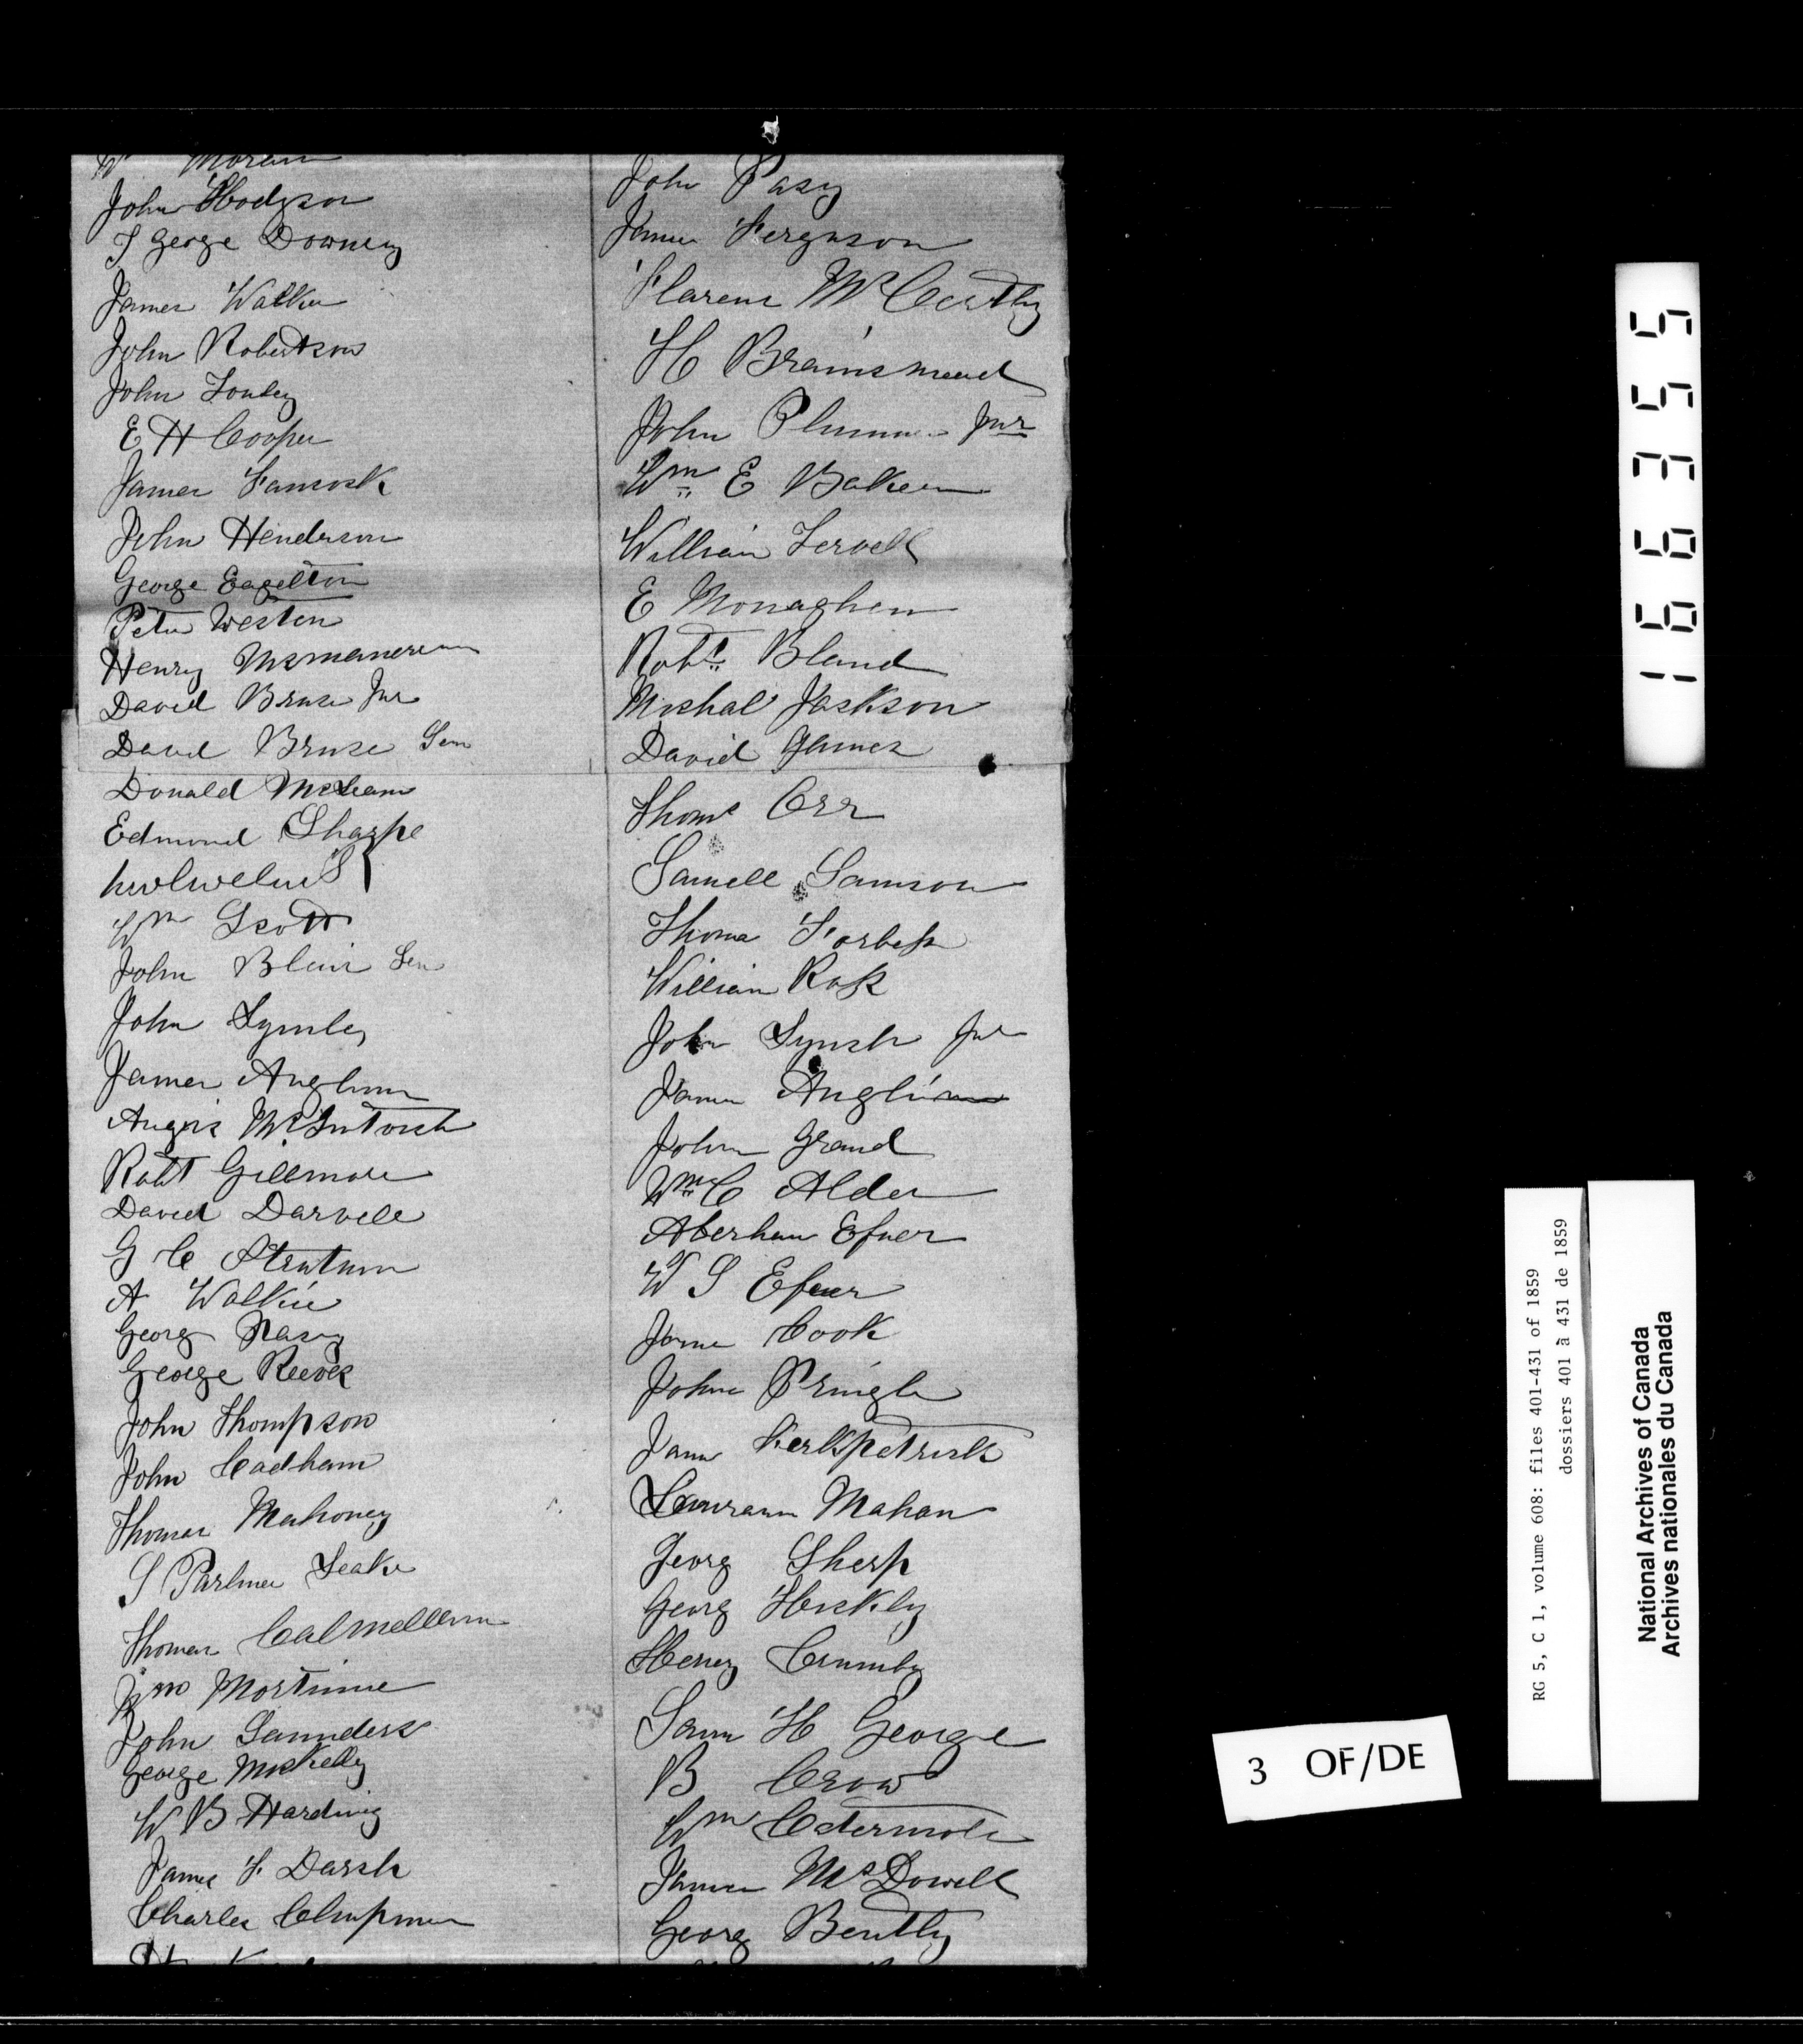 Moran
John Hodgson
T George Downey
James Walker
John Robertson
John
E H Cooper
James
John Henderson
George Eagelton
Peter Westen
Henry
David Bruse Jur
David Bruse Sen
Donald McLean
Edmond Sharpe
Wm Scott
John Blair Sen
John
James Anglum
Angus McIntosh
Robt Gillmore
David Darvell
G C
A Walkie
Georg
George Reeves
John Thompson
John Cadham
Thomas Mahoney
S Leake
Thomas
Wm Mortimer
John Saunders
George McKelly
W B Harding
James F Darsh
Charles Chapman
John Pasy
James Ferguson
McCarthy
H Brainsmead
John Plummer Jur
Wm E Baker
William
E Monaghen
Robt Bland
Mishal Jaskson
David James
Thoms Orr
Samell Samson
Thoma Forbess
William Ross
John Lynsh Jur
James Anglim
John Grand
Wm C Alder
Aberham Efner
W S Efner
Jame Cook
John Pringle
James Kerkpatrick
Mahan
Georg Sherp
Georg Hickly
Heney Crumby
Sam H George
B Crow
Wm
James McDowell
Georg Bently
166355
RG 5, C 1, volume 608: files 401-431 of 1859
dossiers 401 à 431 de 1859
National Archives of Canada
Archives nationales du Canada
3 OF/DE